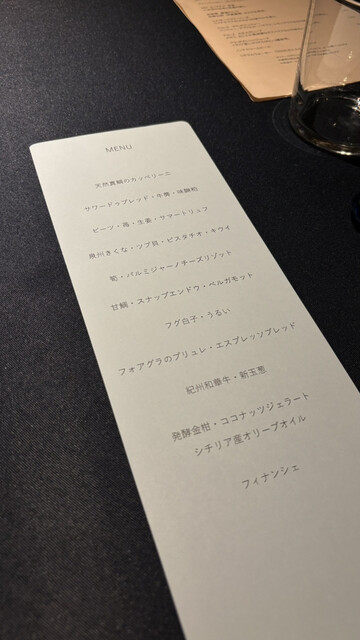 MENU
天然真鯛のカッペリーニ
サワードゥブレッド・牛骨・発酵粕
ビーツ・苺・生姜・サマートリュフ
泉州きくな・ツブ貝・ピスタチオ・キウイ
筍・パルミジャーノチーズリゾット
甘鯛・スナップエンドウ・ベルガモット
フグ白子・うるい
フォアグラのブリュレ・エスプレッソブレッド
紀州和華牛・新玉葱
発酵金柑・ココナッツジェラート
シチリア産オリーブオイル
フィナンシェ